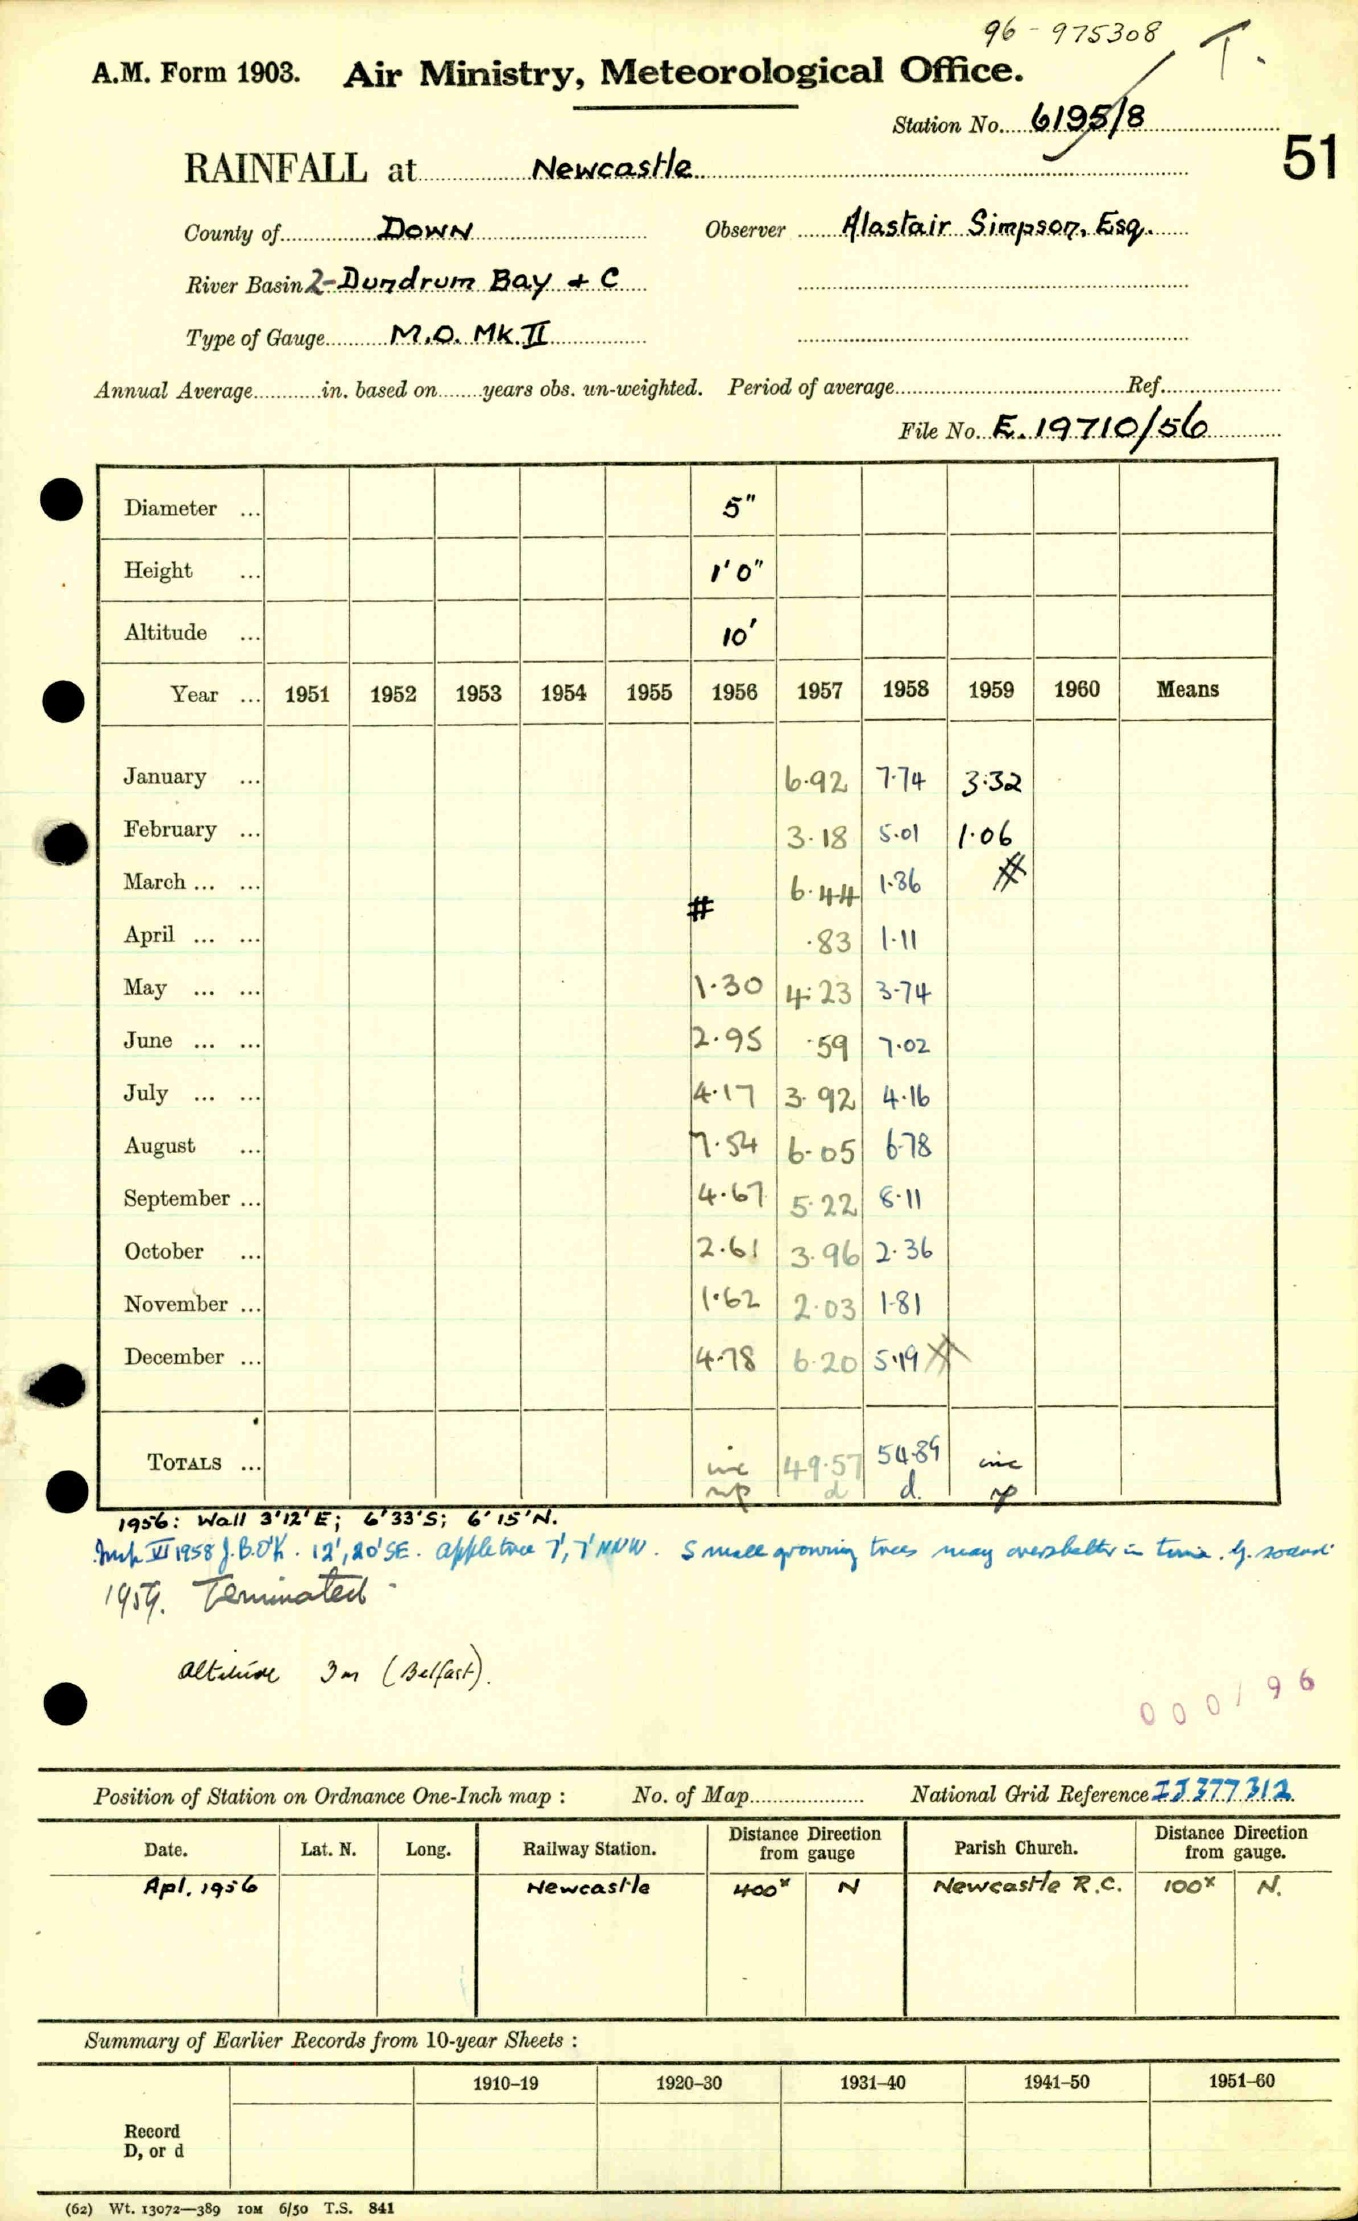 96-975308 T.
A.M. Form 1903. Air Ministry, Meteorological Office.
Station No. 6195/8
51
RAINFALL at Newcastle
County of Down Observer Alastair Simpson, Esq.
River Basin 2-Dundrum Bay + C
Type of Gauge M.O. Mk. II
Annual Average in. based on years obs. un-weighted. Period of average Ref.
File No. E. 19710/56
Diameter ... 5"
Height ... 1' 0"
Altitude ... 10'
Year ... 1951 1952 1953 1954 1955 1956 1957 1958 1959 1960 Means
January ... 6.92 7.74 3.32
February ... 3.18 5.01 1.06
March ... ... 6.44 1.86 #
#
April ... ... .83 1.11
May ... ... 1.30 4.23 3.74
June ... ... 2.95 .59 7.02
July ... ... 4.17 3.92 4.16
August ... 7.54 6.05 6.78
September ... 4.67 5.22 8.11
October ... 2.61 3.96 2.36
November ... 1.62 2.03 1.81
December ... 4.78 6.20 5.19 #
TOTALS ... inc 49.57 54.89 inc
d d
1956: Wall 3'12'E; 6'33'S; 6'15'N.
VI 1958 J.B.O'K. 12', 20'SE. apple tree 7', 7'NNW. Small growing trees may overshelter in time.
1959. Terminated
Altitude 3m (Belfast).
000196
Position of Station on Ordnance One-Inch map : No. of Map National Grid Reference IJ 377 312
Date. Lat. N. Long. Railway Station. Distance Direction from gauge Parish Church. Distance Direction from gauge.
Apl. 1956 Newcastle 400x N Newcastle R.C. 100x N.
Summary of Earlier Records from 10-year Sheets :
1910–19 1920–30 1931–40 1941–50 1951–60
Record
D, or d
(62) Wt. 13072—389 10M 6/50 T.S. 841